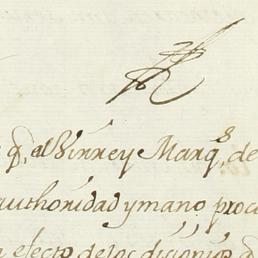 q, al Virrey Marqs, de
authoridad y mano proce
efecto de los